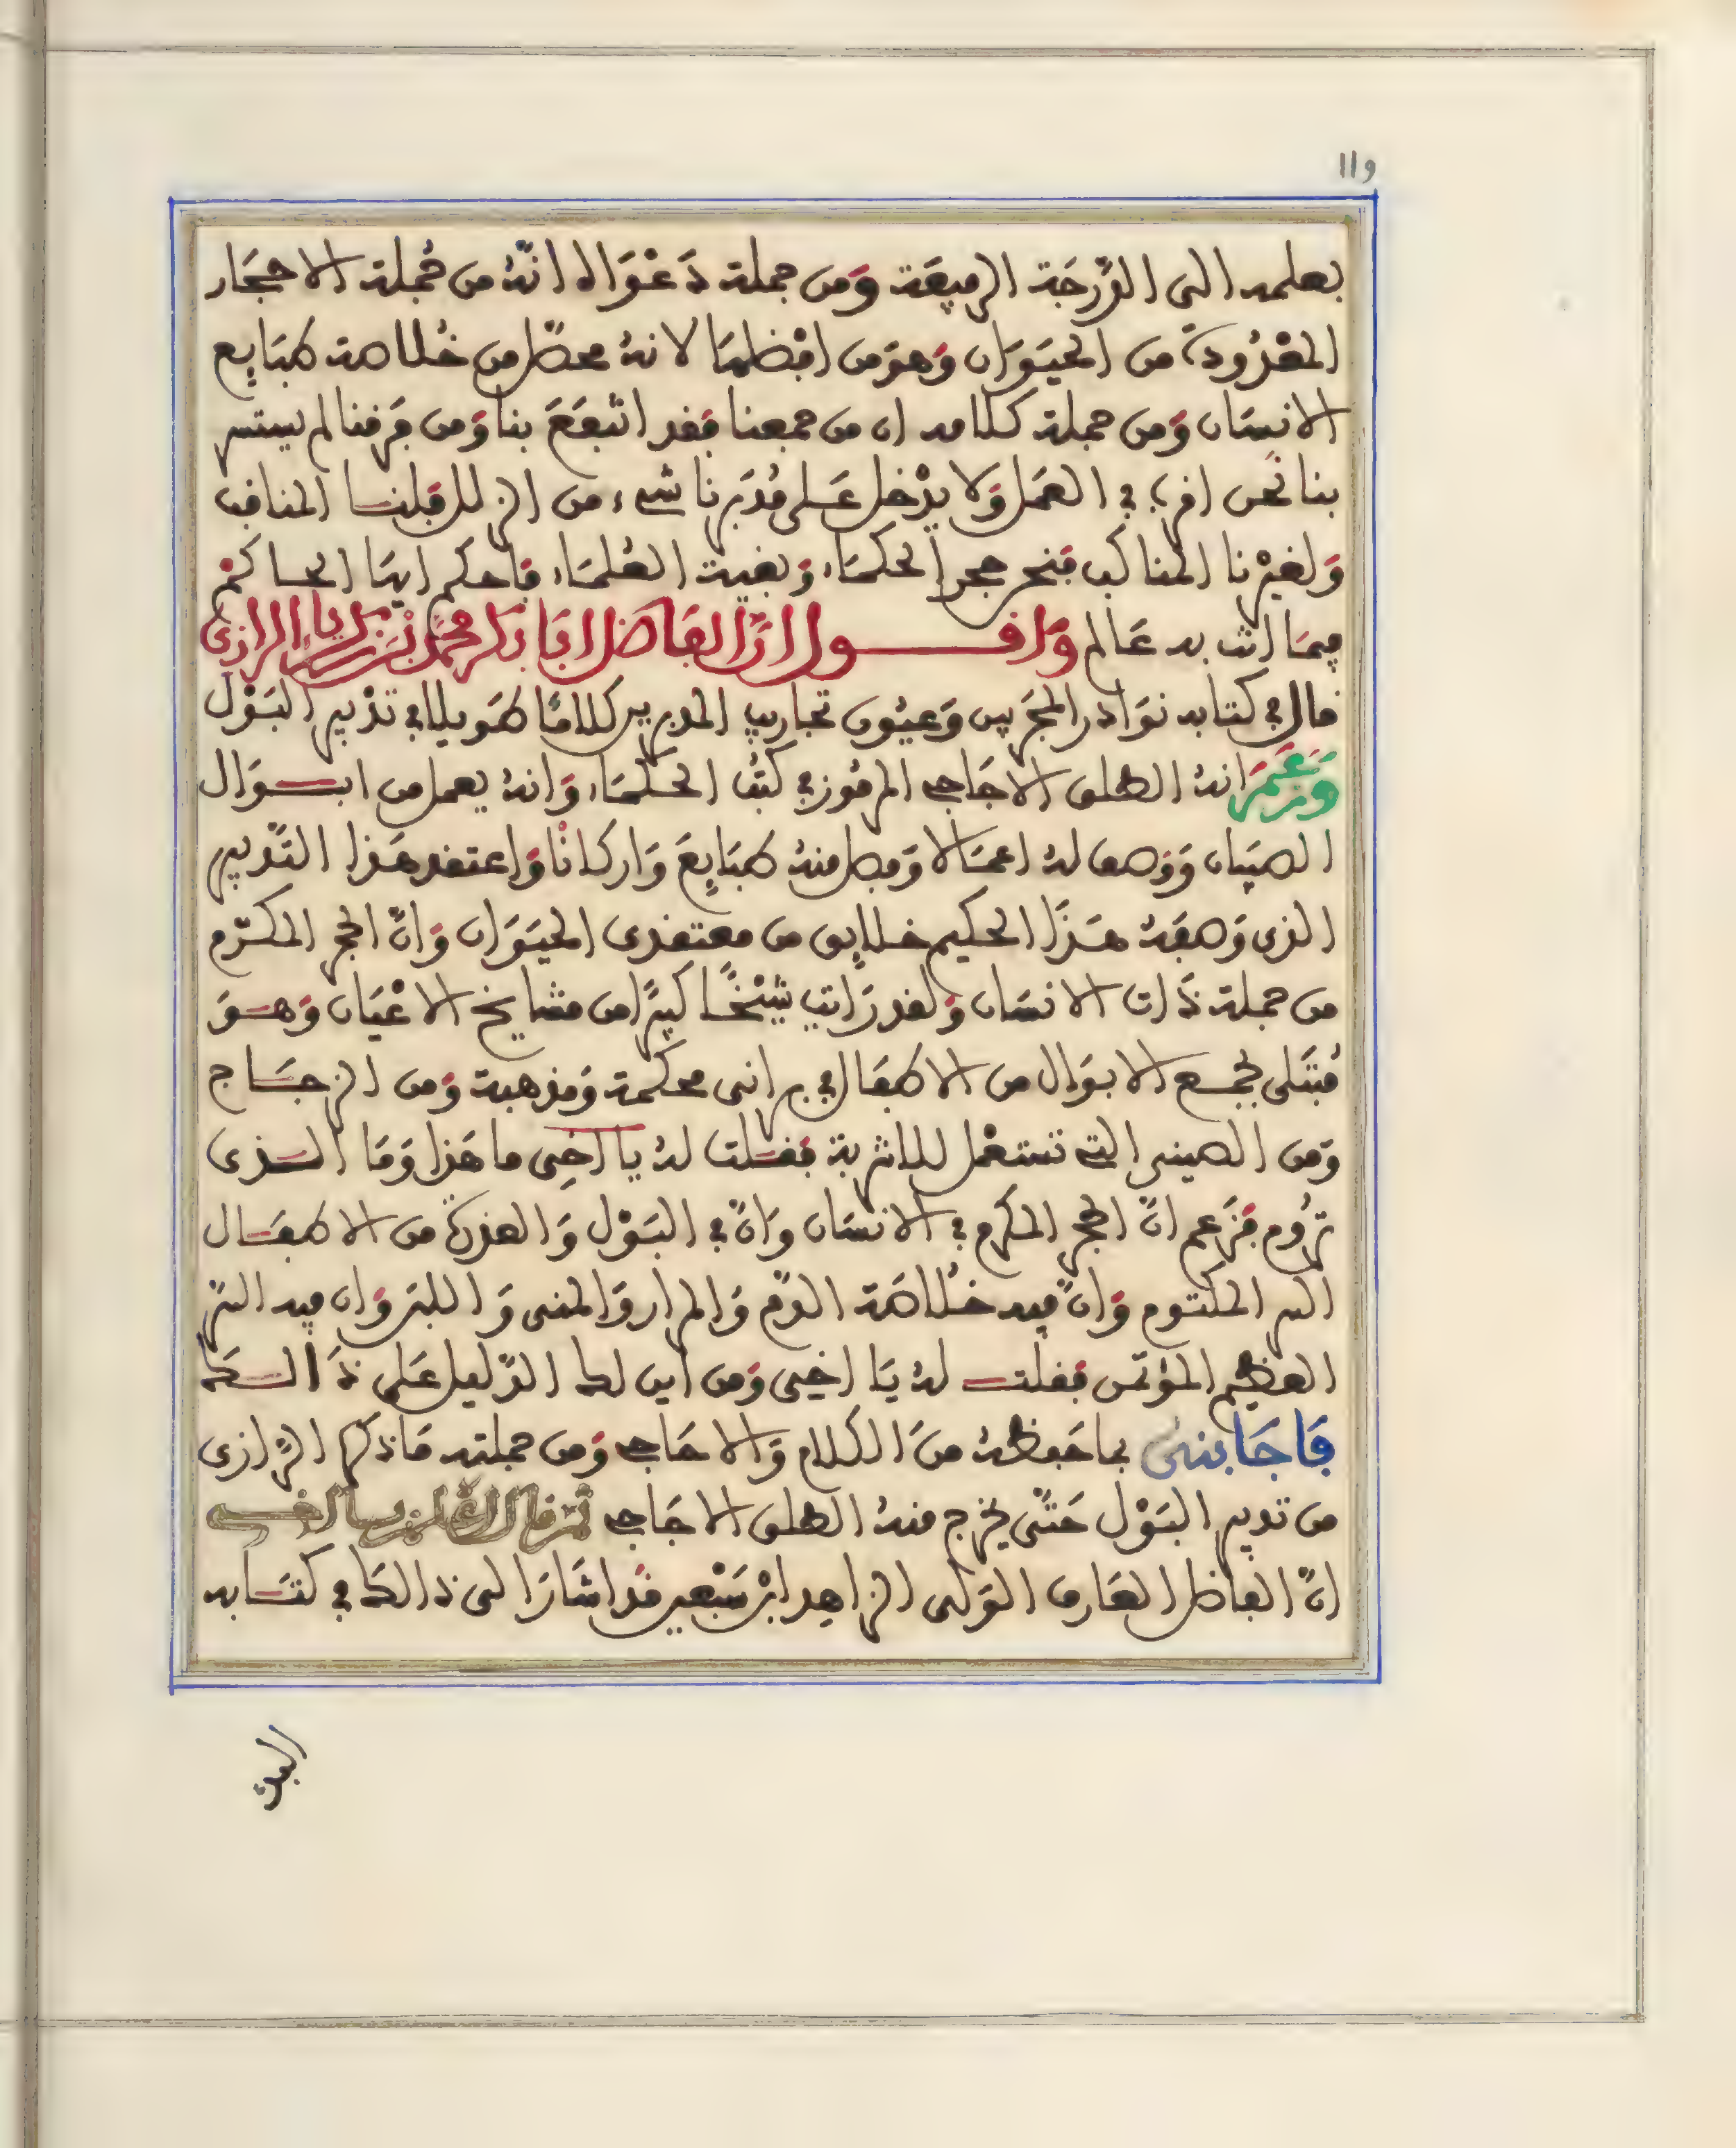 119
بعلمه الى الدَّرَجَة الرفيعَة وَمن جملة دَعْوَاه انّهُ من جُملة الاحجَار
المعْدُودة من الحيَوَان وَهوَ من افضلهَا لانهُ محصّل من خُلاصة طبَايِع
الانسَان وَمن جملة كلامه ان من جمعنا فقد انتفعَ بنا وَمن فرقنا لم يستتر
بنا نَحن افرا في العمَل وَلا يدْخل عَلى مُدَبرنا شيء من الزلل فلنا المناقب
وَلغيْرنا المناكب فنحن حجر الحكمَاء وَبغية العُلمَاء فاحكم ايهَا الحاكمْ
فيمَا انت به عَالم وَاقول انَّ الفَاضل ابَا بَكر محمّد بْن زكريَاء الرازى
قال في كتابه نوَادر المجَربين وَعيُون تجاريب المدبرين كلامًا طَويلا في تدْبير البَوْل
وَزعَمَ انهُ الطلق الاجَاجي المرمُوز في كتُب الحكمَاء وَانهُ يعمل من ابوَال
الصبيَان وَوَصف لهُ اعمَالا وَفصل منهُ طبَايِعَ وَاركانًا وَاعتقد هَذا التَّدبير
الذى وَصفَهُ هَذَا الحكيم خلايِق من معتقدى الحيَوَان وَانَّ الحجر المكرّم
من جملة ذَات الانسَان وَلقد رَايت شيْخًا كبيرًا من مشايخ الاعْيَان وَهوَ
مُبتَلى بجمع الابوَال من الاطفَال في برانى محكمة وَمذهبة وَمن الزجَاج
وَمن الصينى التي تستعْمل للاشربة فقلت لهُ يا اخِى ما هَذا وَمَا الذى
ترُوم فزَعم انّ الحجر المكرم في الانسَان وَانّ في البَوْل وَالعذرة من الاطفَال
السر المكتوم وَانّ فيه خُلاصَة الدّم وَالمرار وَالمنى وَاللبن وَان فيه السّر
العظيم المؤتمن فقلت لهُ يَا اخِى وَمن اين لك الدّليل عَلى ذَالك
فَاجَابنى بما حَفظهُ منَ الكلام وَالاحَاجي وَمن جملته مَا ذكره الرّازى
من تدبير البَوْل حَتَّى يخرج منهُ الطلق الاجَاجي ثم قال اعلم يا اخى
انّ الفاضل العَارف الوَلى الزاهِد ابْن سَبْعين قد اشارَ الى ذالك في كتَابه